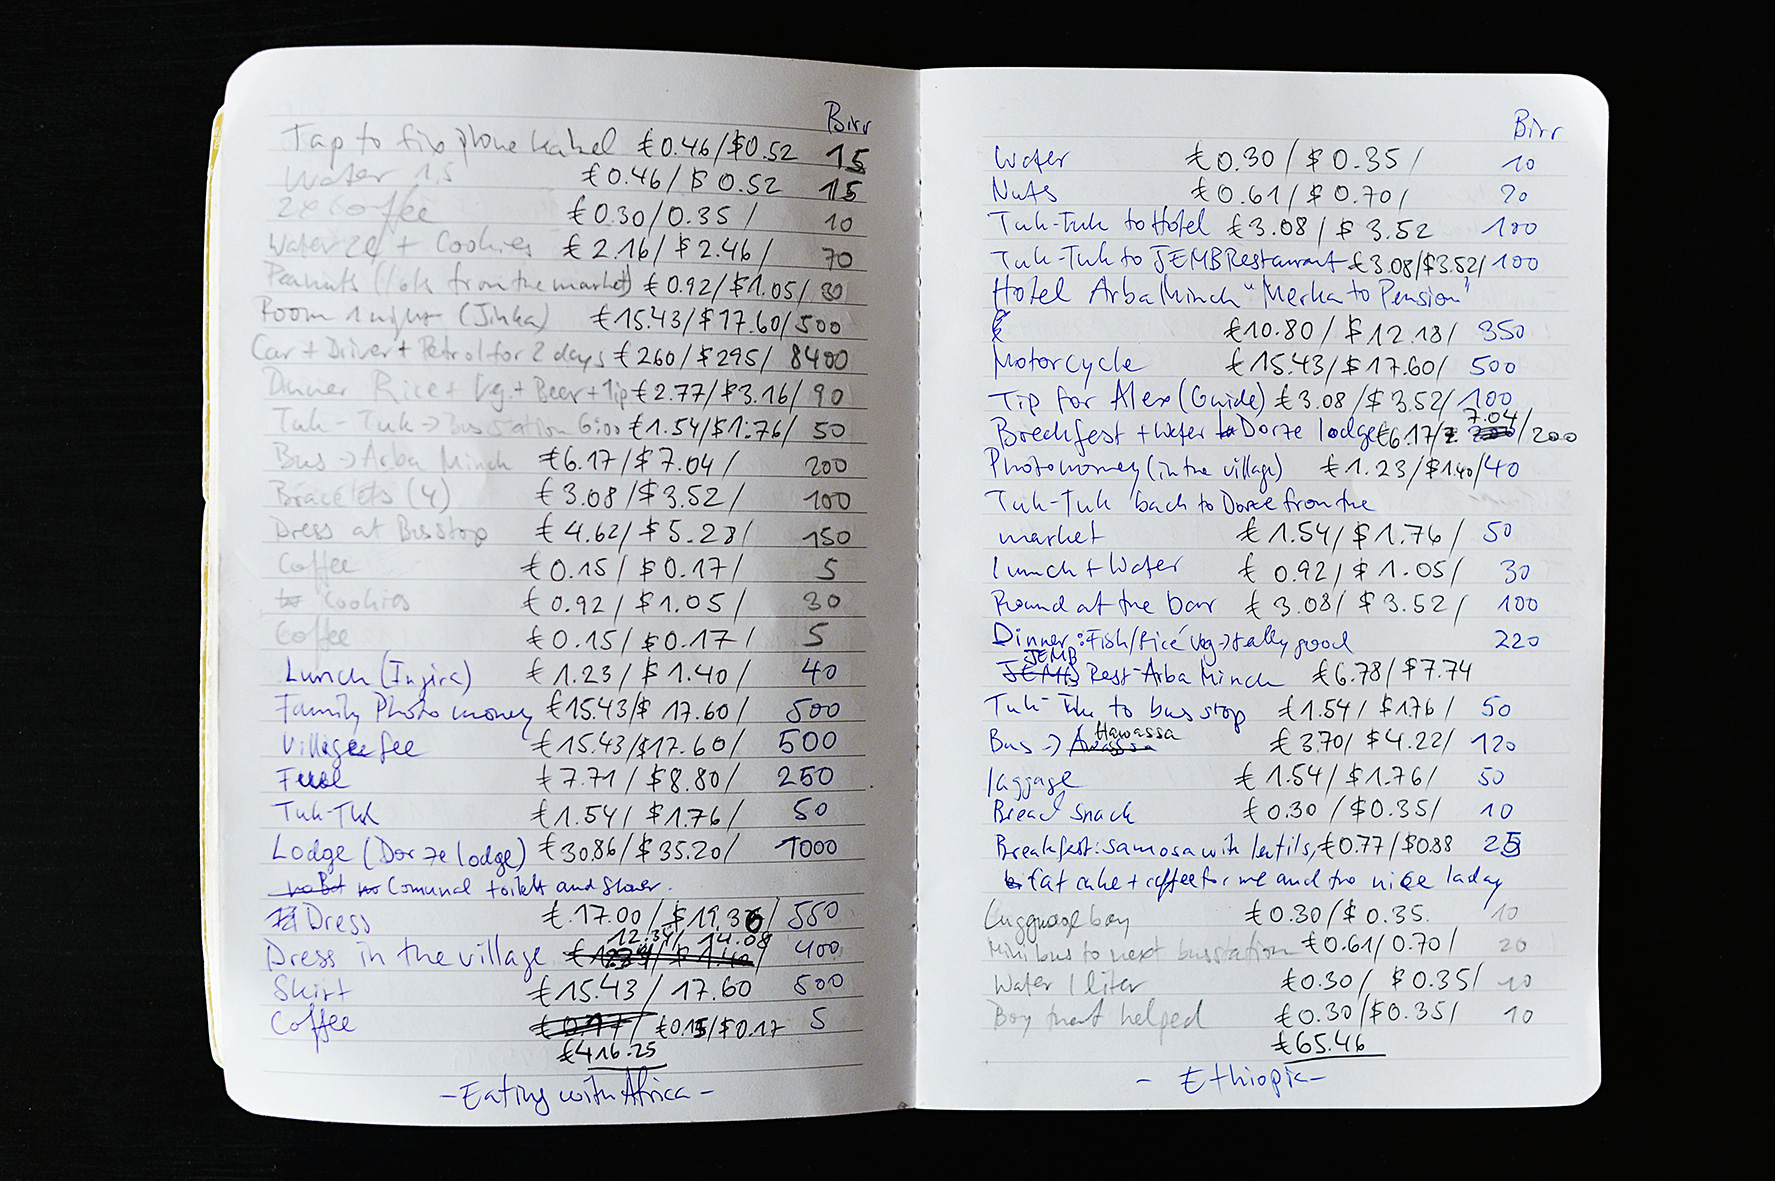 Birr
Tap to fix phone kabel €0.46/$0.52 15
Water 1,5 €0.46/$0.52 15
2x Coffee €0.30/0.35/ 10
Water 2l + Cookies €2.16/$2.46/ 70
Peanuts (from the market) €0.92/$1.05/30
Room 1 night (Jinka) €15.43/$17.60/500
Car + Driver + Petrol for 2 days €260/$295/ 8400
Dinner Rice + Veg. + Beer + Tip €2.77/$3.16/90
Tuk-Tuk -> Bus station 6:00 €1.54/$1.76/ 50
Bus -> Arba Minch €6.17/$7.04/ 200
Bracelets (4) €3.08/$3.52/ 100
Dress at Bus stop €4.62/$5.28/ 150
Coffee €0.15/$0.17/ 5
Cookies €0.92/$1.05/ 30
Coffee €0.15/$0.17/ 5
Lunch (Injira) €1.23/$1.40/ 40
Family Photo money €15.43/$17.60/ 500
Village fee €15.43/$17.60/ 500
Fuel €7.71/$8.80/ 250
Tuk-Tuk €1.54/$1.76/ 50
Lodge (Dorze lodge) €30.86/$35.20/ 1000
Comunal toilett and Shower.
Dress €17.00/$19.36/ 550
Dress in the village 12.34/14.08 400
Skirt €15.43/17.60 500
Coffee €0.15/$0.17 5
€416.25
-Eating with Africa-
Birr
Water €0.30/$0.35/ 10
Nuts €0.61/$0.70/ 20
Tuk-Tuk to Hotel €3.08/$3.52 100
Tuk-Tuk to JEMB Restaurant €3.08/$3.52/100
Hotel Arba Minch "Merkato Pension"
€10.80/$12.18/ 350
Motorcycle €15.43/$17.60/ 500
Tip for Alex (Guide) €3.08/$3.52/100
Breakfest + Water Dorze lodge €6.17/7.04/200
Photomoney (in the village) €1.23/$1.40/40
Tuk-Tuk back to Dorze from the
market €1.54/$1.76/ 50
Lunch + Water €0.92/$1.05/ 30
Round at the bar €3.08/$3.52/ 100
Dinner: Fish/Rice Veg -> really good 220
JEMB Rest-Arba Minch €6.78/$7.74
Tuk-Tuk to bus stop €1.54/$1.76/ 50
Bus -> Hawassa €3.70/$4.22/ 120
luggage €1.54/$1.76/ 50
Bread Snack €0.30/$0.35/ 10
Breakfest: samosa with lentils, €0.77/$0.88 25
fat cake + coffee for me and two nice laday
Lugguage boy €0.30/$0.35. 10
Minibus to next busstation €0.61/0.70/ 20
Water 1 liter €0.30/$0.35/ 10
Boy that helped €0.30/$0.35/ 10
€65.46
- Ethiopia-